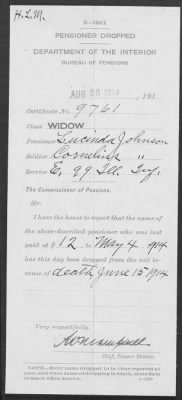 H.L.M.
3—1081
PENSIONER DROPPED
DEPARTMENT OF THE INTERIOR
BUREAU OF PENSIONS
AUG 20 1914 191
Certificate No. 9761
Class WIDOW
Pensioner Lucinda Johnson
Soldier Cornelius "
Service E. 99 Ill. Inf.
The Commissioner of Pensions.
Sir:
I have the honor to report that the name of
the above-described pensioner who was last
paid at $ 12, to May 4, 914
has this day been dropped from the roll be-
cause of death, June 15, 1914
Very respectfully,
Chief, Finance Division.
NOTE.—Every name dropped to be thus reported at
once, and when cause of dropping is death, state date
of death when known.